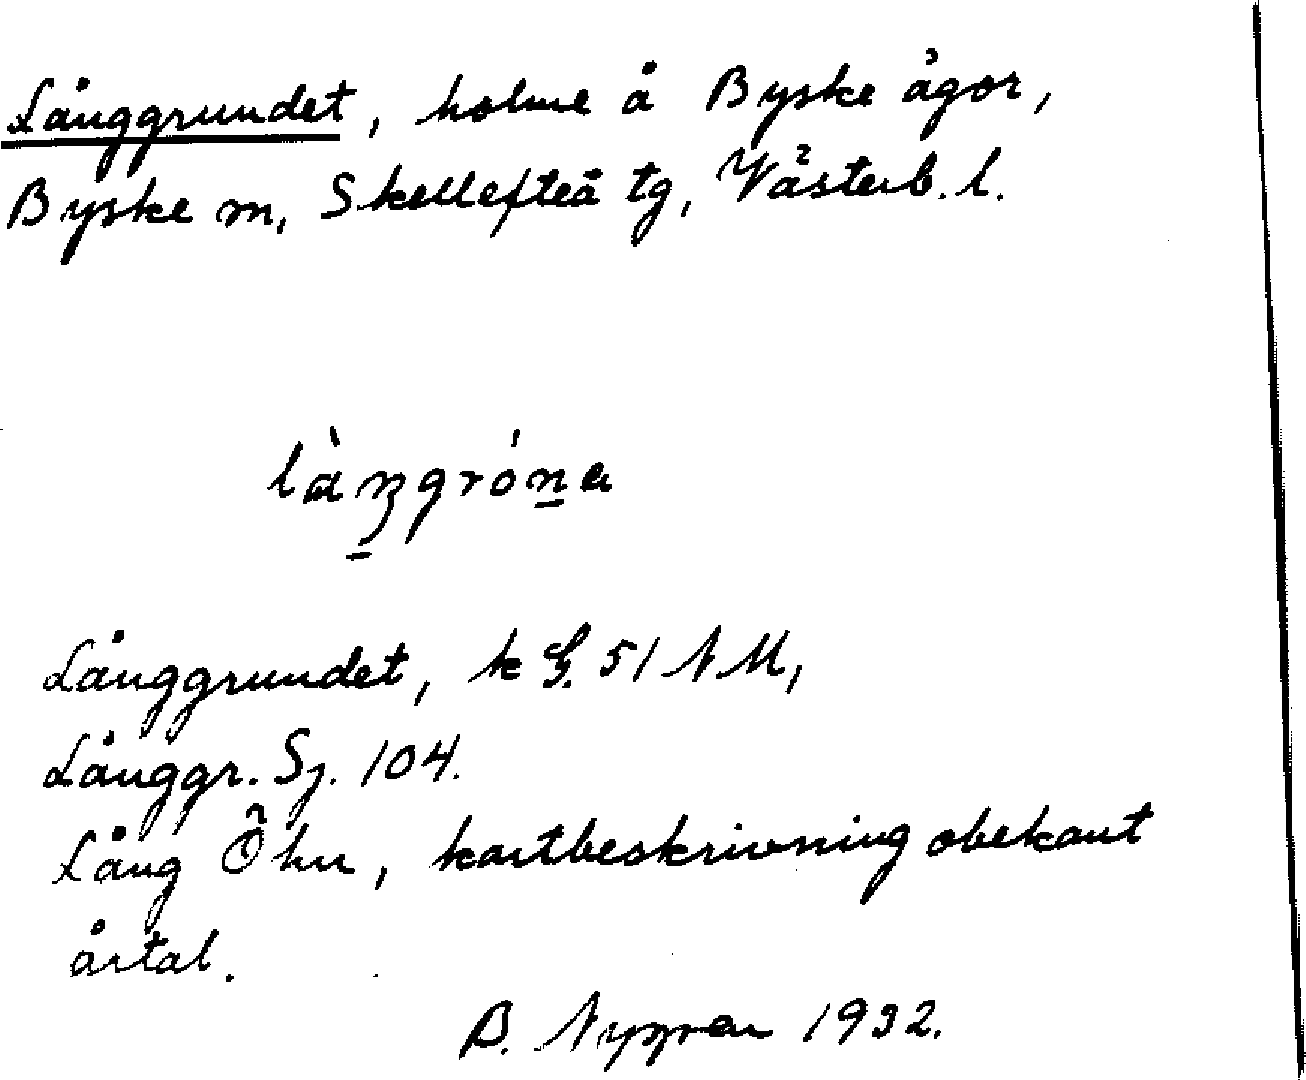 Långgrundet, holme å Byske ägor,
Byske sn, Skellefteå tg, Västerb. l.
Långgrundet, k G. 51 NM,
Långgr. Sj. 104.
Lång Öhn, kartbeskrivning obekant
årtal.
B. Nygren 1932.